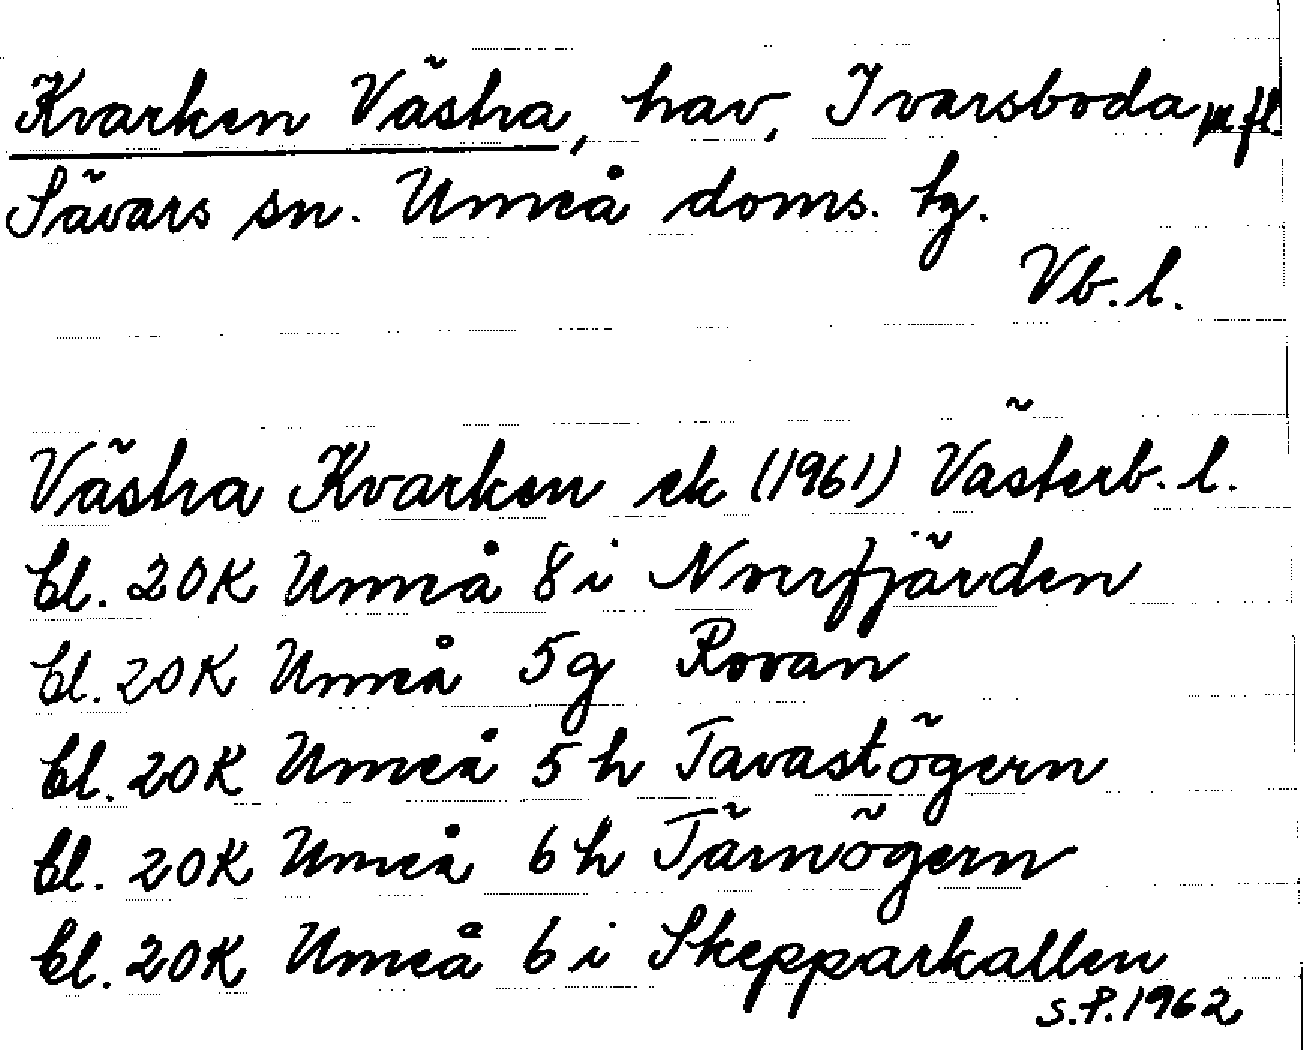 Kvarken Västra, hav, Ivarsboda m fl.
Sävars sn. Umeå doms. tg.
Vb. l.
Västra Kvarken ek (1961) Västerb. l.
bl. 20K Umeå 8 i Norrfjärden
bl. 20K Umeå 5g Rovan
bl. 20K Umeå 5 h Tavastögern
bl. 20K Umeå 6 h Tärnögern
bl. 20K Umeå 6 i Skepparkallen
S.P. 1962